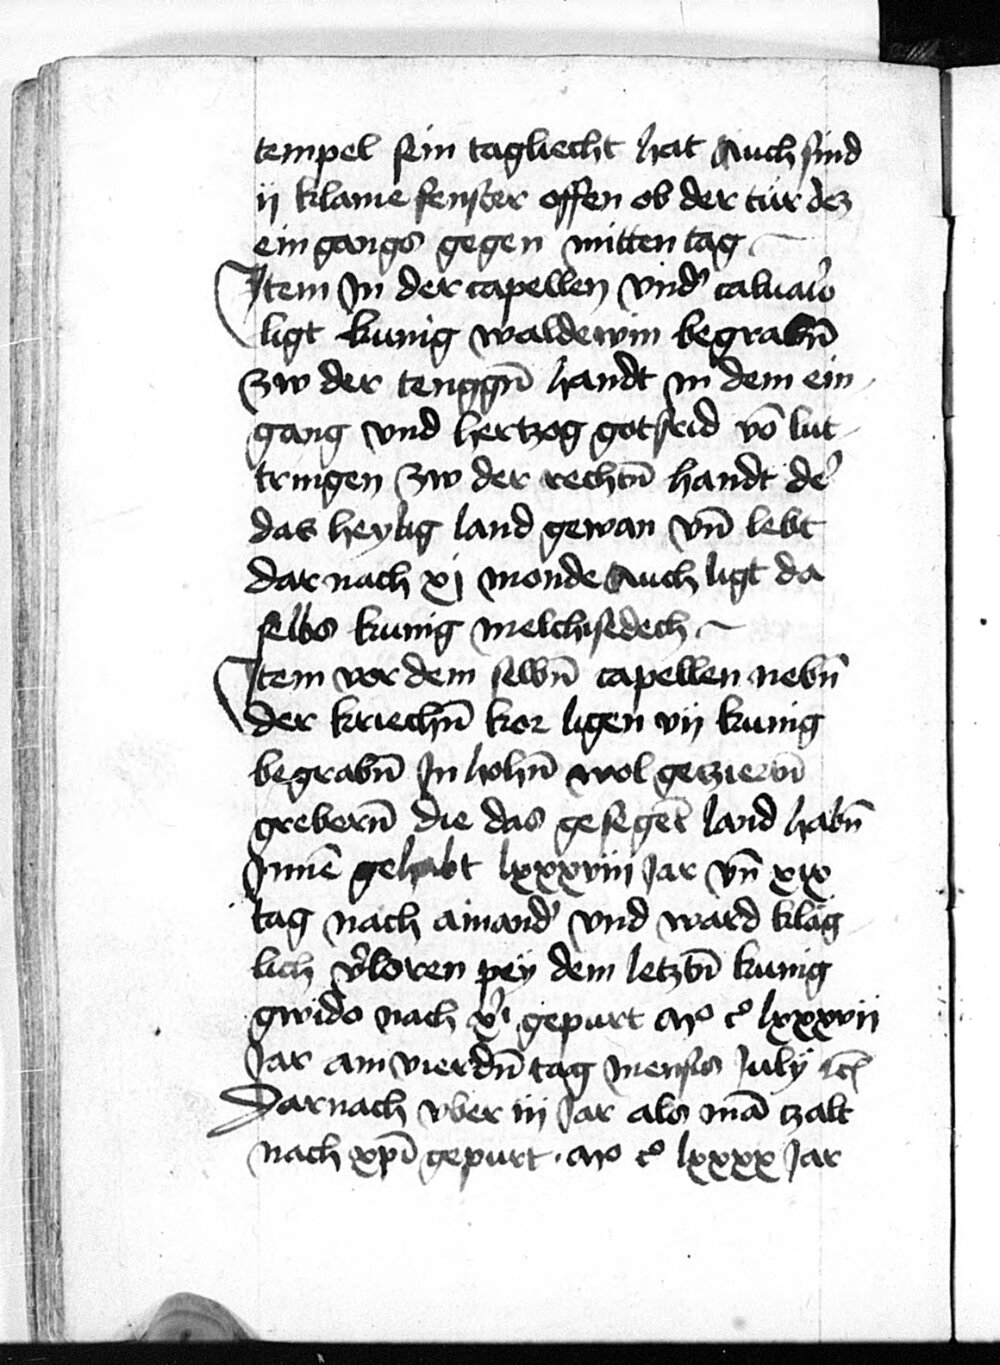 tempel sein tagliecht hat Auch sind
ij klaine fenster offen ob der tür dez
ein gangs gegen mitten tag
Item In der capellen vnd' caluarie
ligt kunig waldewin begrabn̄
zw der tenggn̄ handt in dem ein
gang vnd hertzog gotfrid vō lut
tringen zw der rechtn̄ handt de'
das heylig land gewan vn̄ lebt
dar nach xj monde Auch ligt da
selbs kunig melchisedech
Item vor dem selbn̄ capellen nebn̄
der kriechn̄ kor ligen vij kunig
begrabn̄ In hohn̄ wol geziertn̄
grebern̄ die das gesegēt land habn̄
Innē gehabt lxxxviij Jar vn̄ xix
tag nach ainand' vnd ward kläg
lich v'loren pey dem letztn̄ kunig
gwido nach xi gepurt mo co lxxxvij
Jar am vierdn̄ tag mensis July etc
Darnach vber iij Jar als mā tzalt
nach xpī gepurt · mo co lxxxx Jar